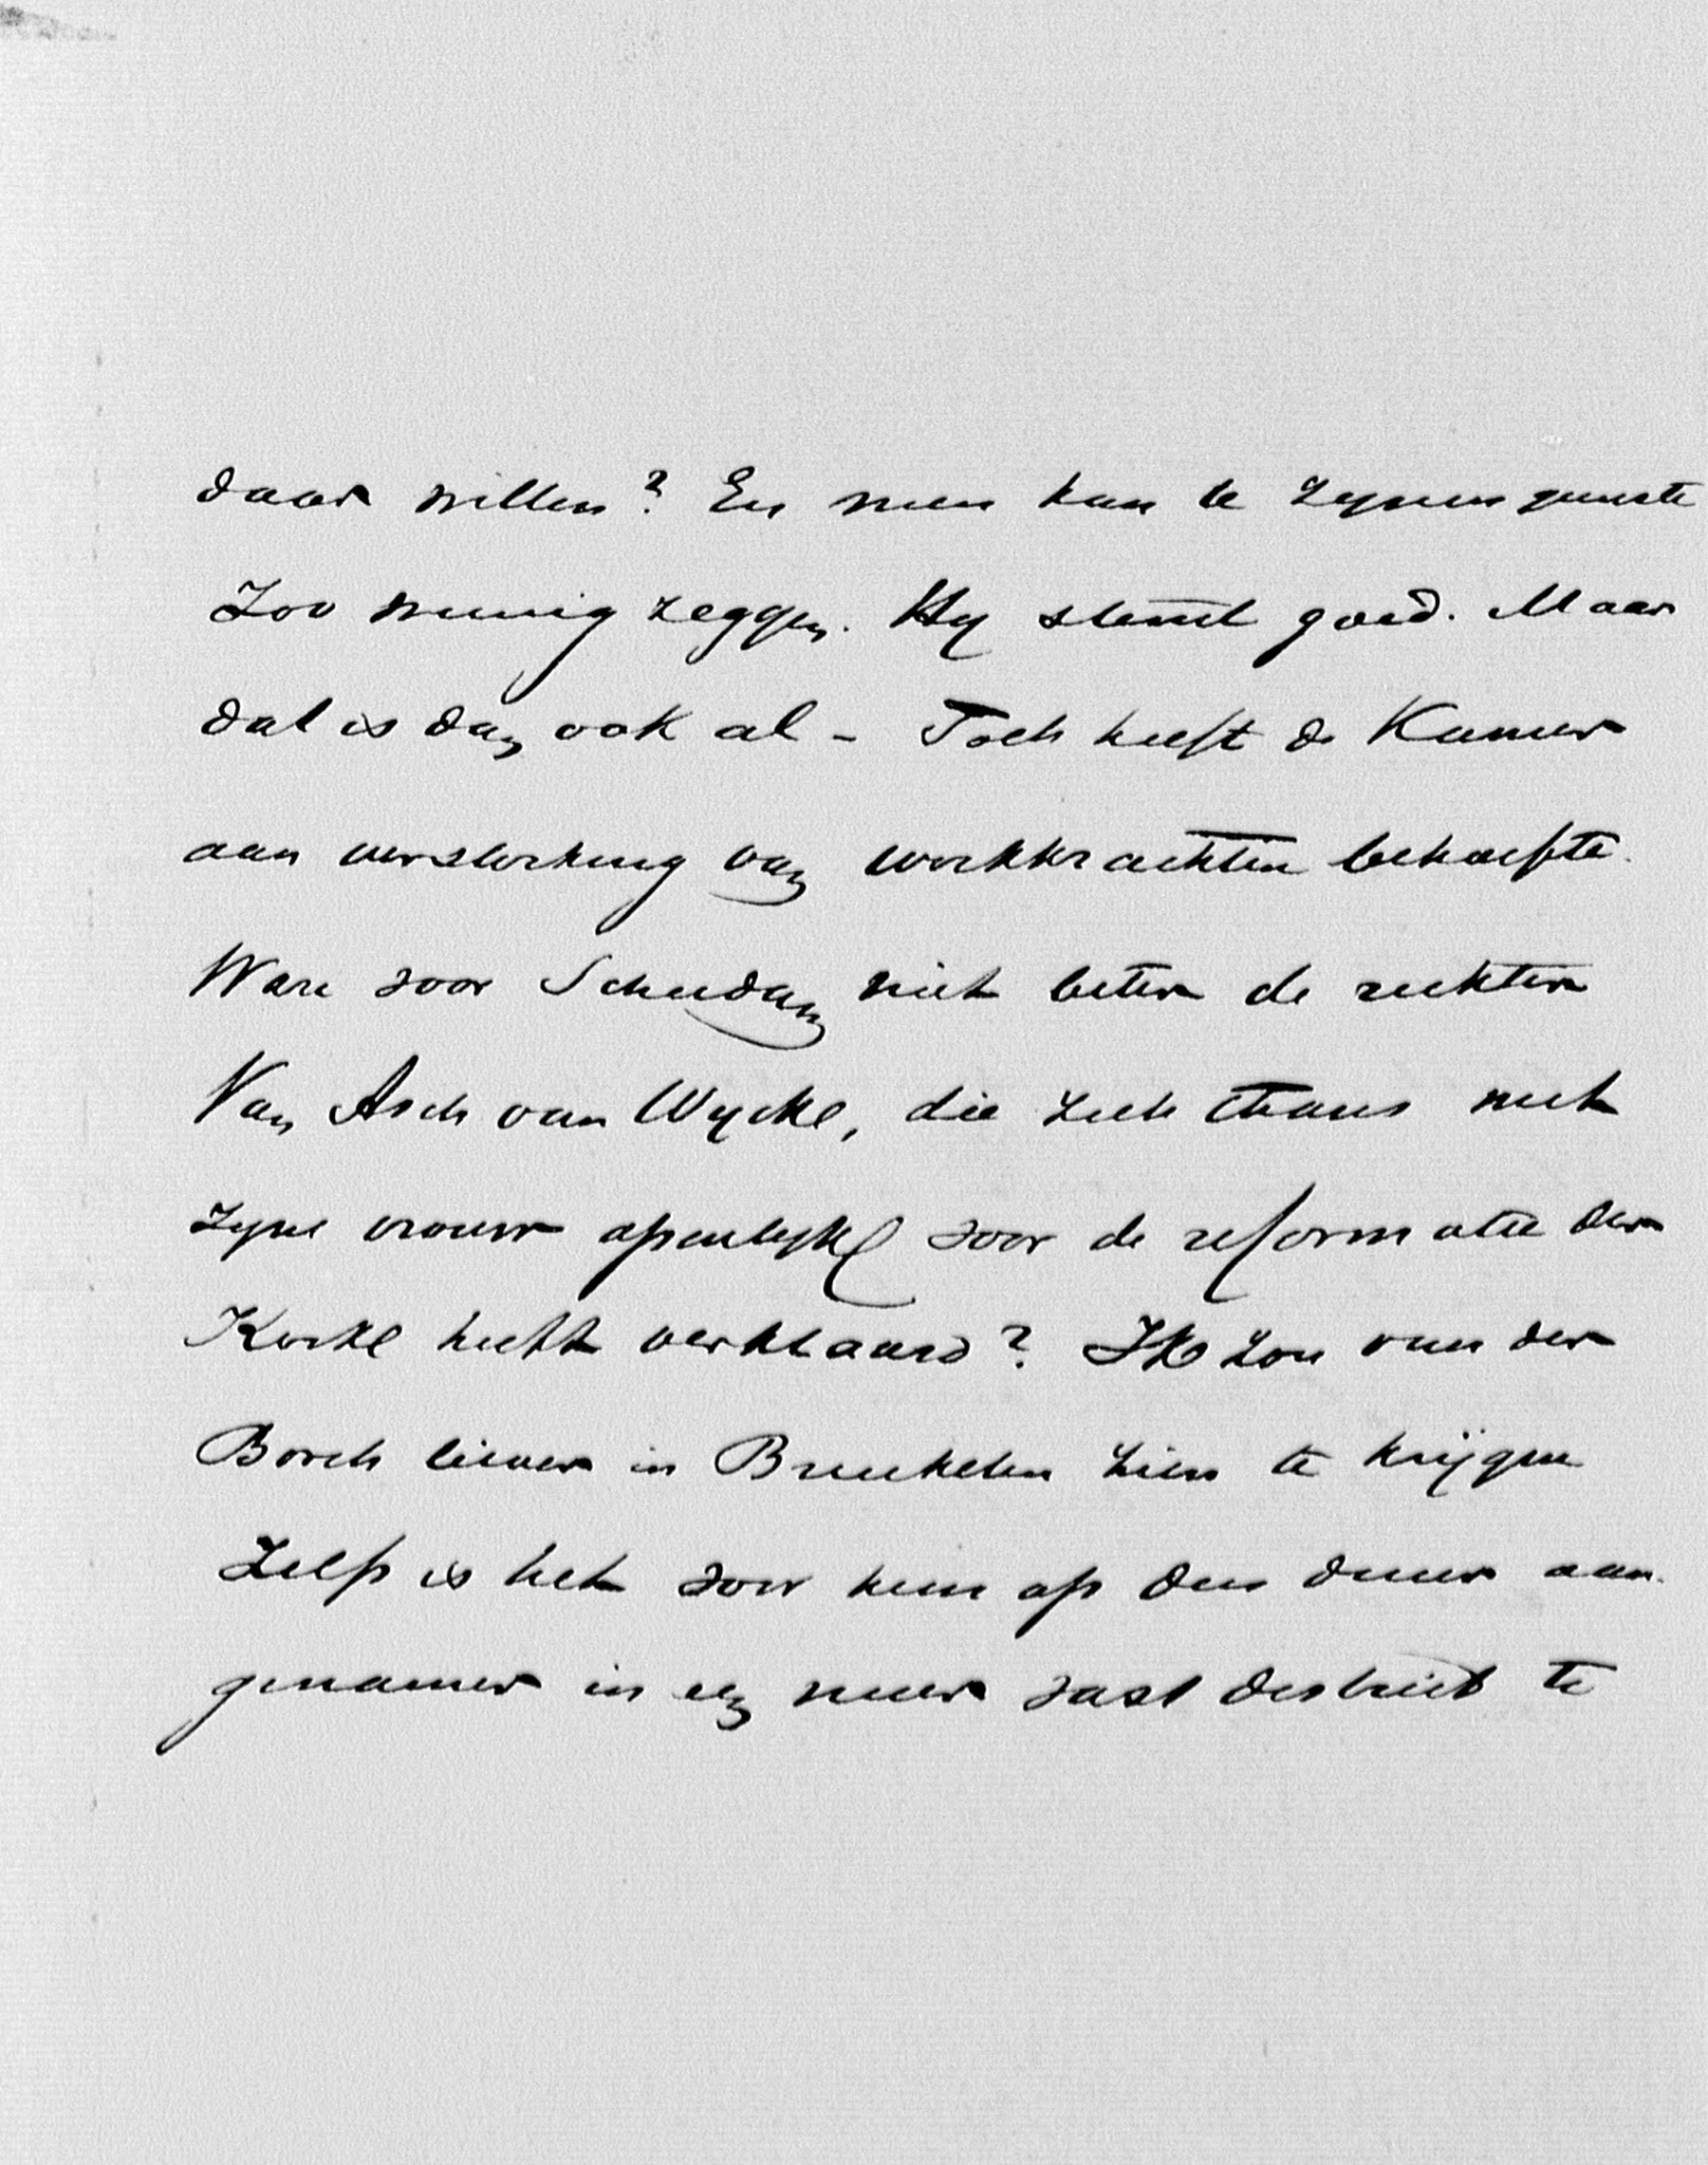 daar willen? En men kan te zynen gunste
Zoo weinig zeggen. Hy stemt goed. Maar
dat is dan ook al – Toch heeft de Kamer
aan versterking van werkkrachten behoefte.
Ware voor Schiedam niet beter de rechter
Van Asch van Wyck, die zich thans met
zyne vrouw openlyk voor de reformatie der
Kerke heeft verklaard? Ik zou van der
Borch liever in Breukelen zien te krijgen
Zelfs is het voor hem op den duur aan.
genamer in een meer vast district te